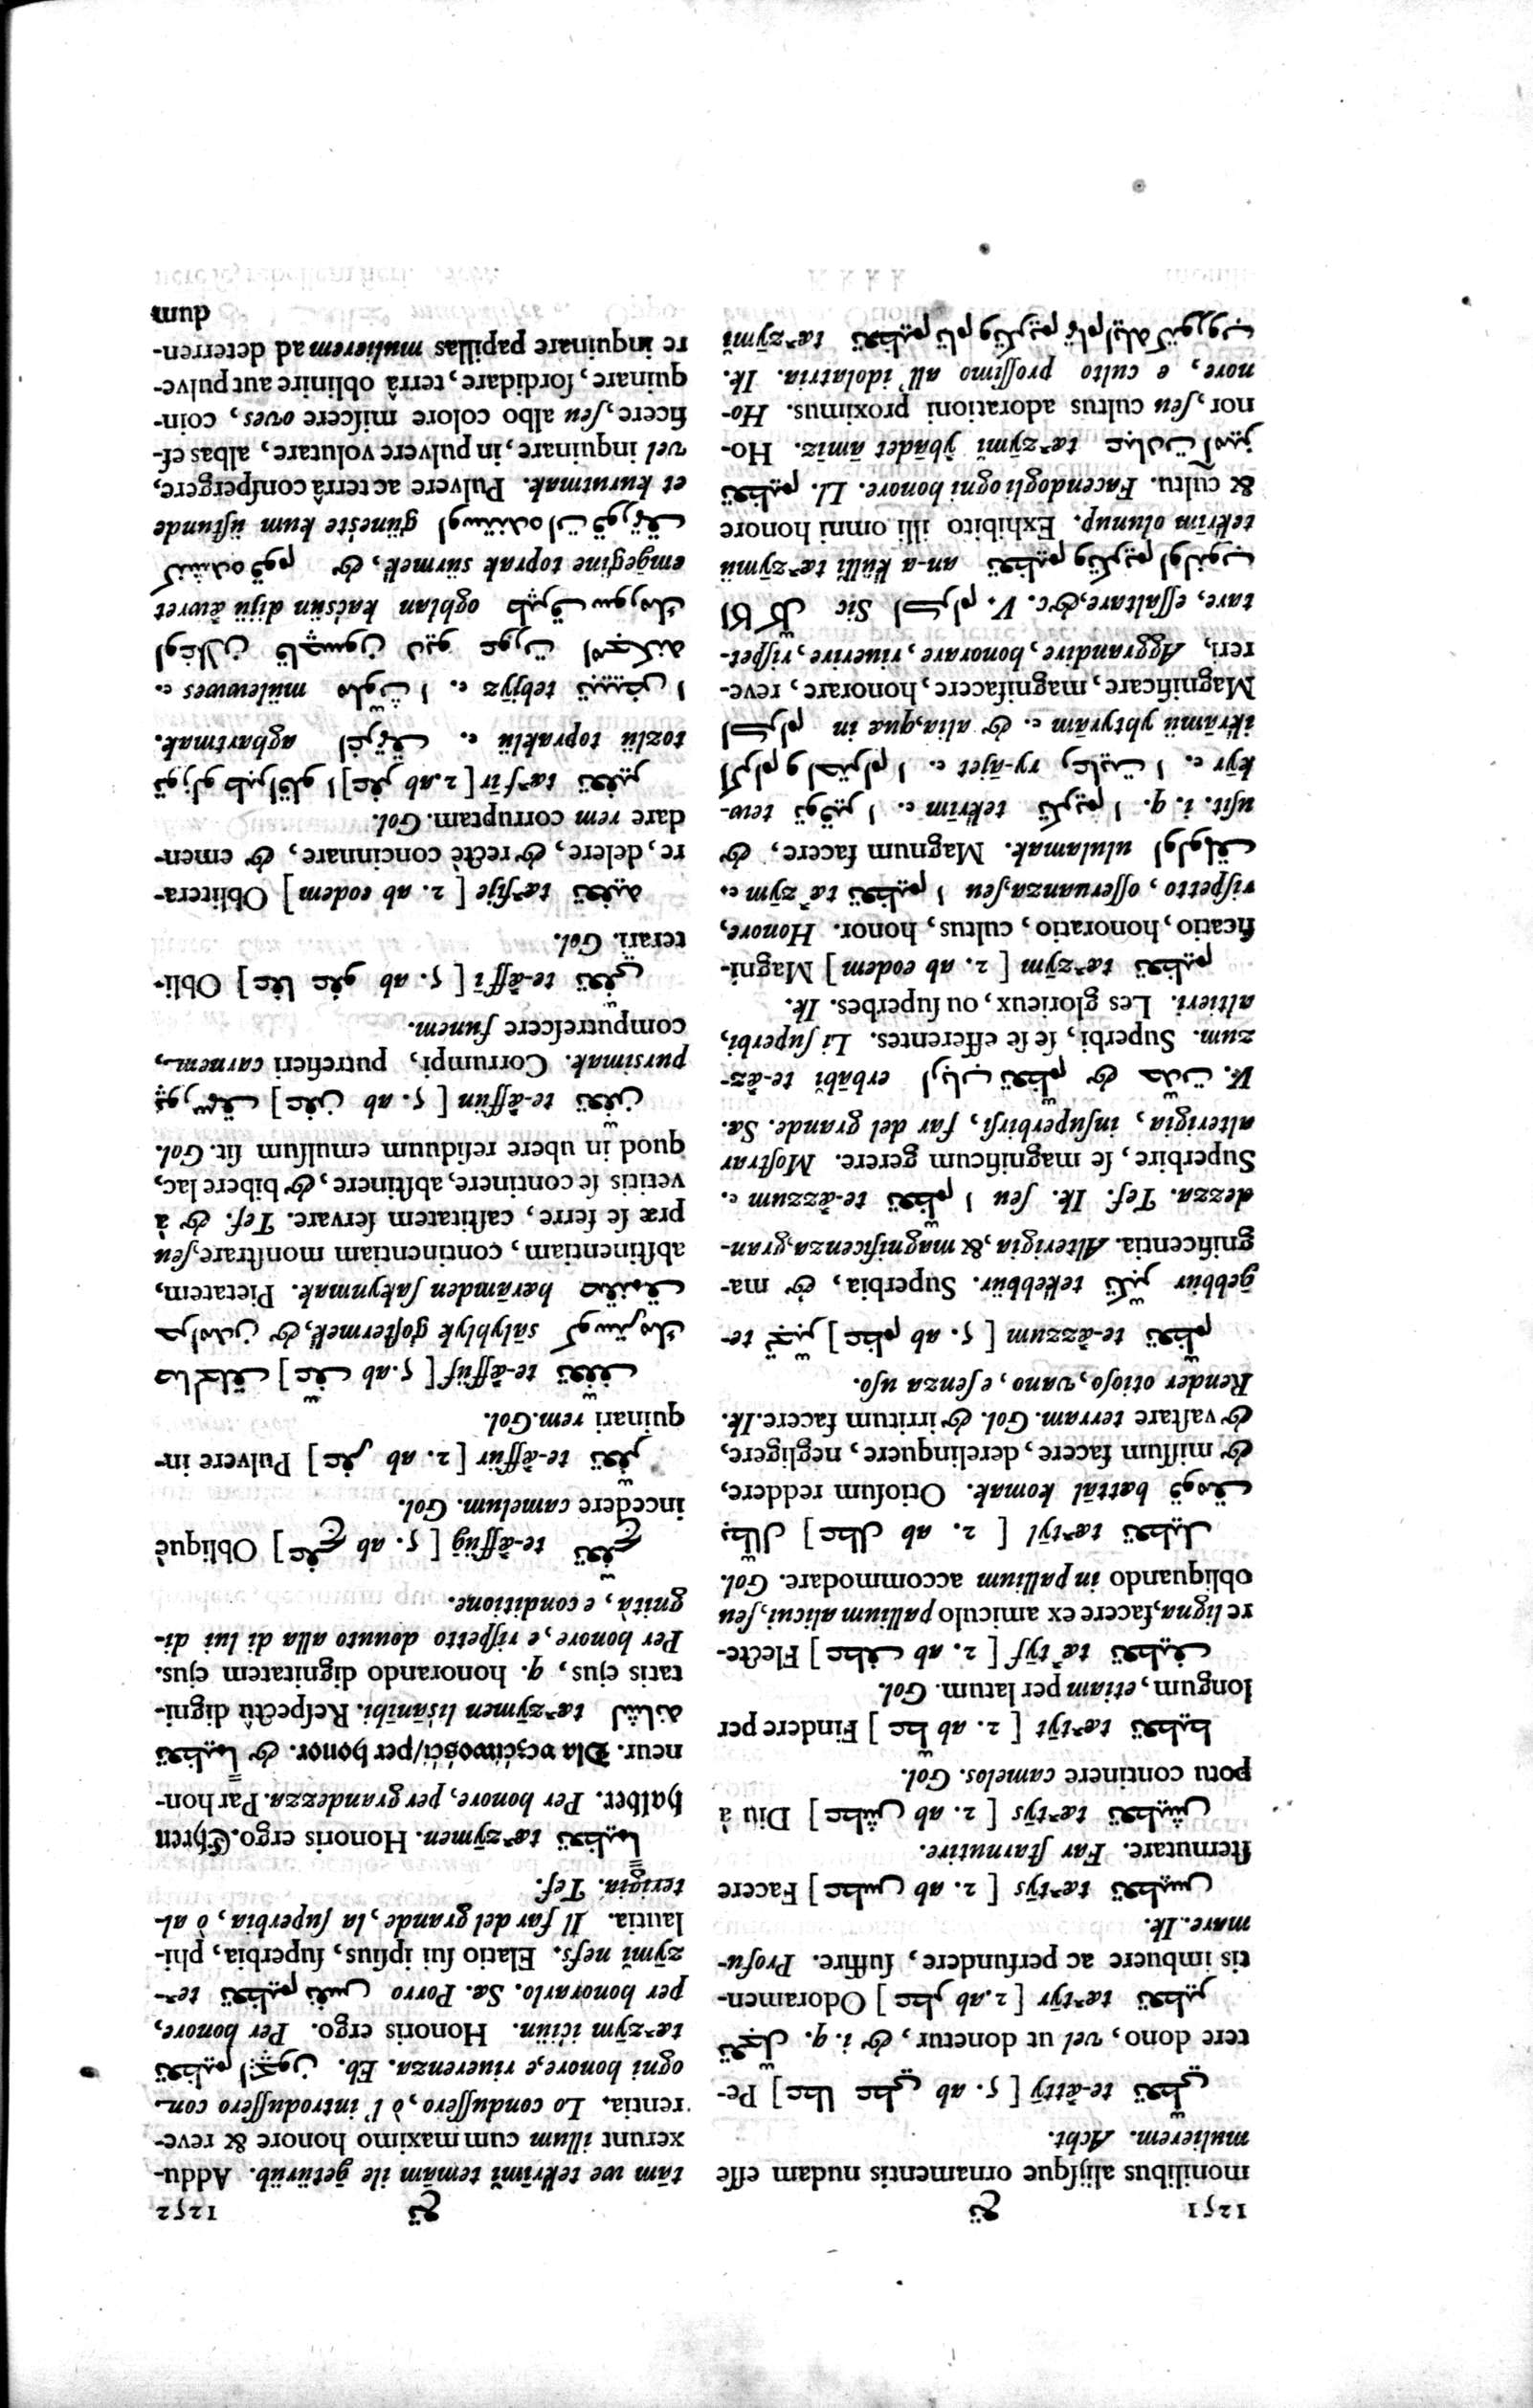 1251 تع
monilibus alijſque ornamentis nudam eſſe
mulierem. Acht.
تعطّي te-ătty̆ [5. ab عطي عطا] Pe-
tere dono, vel ut donetur, & i. q. تعجّل
تعطير tæ*ty̆r [2. ab عطر] Odoramen-
tis imbuere ac perfundere, ſuffire. Profu-
mare. Ik.
تعطيس tæ*ty̆s [2. ab عطس] Facere
ſternutare. Far ſtarnutire.
تعطيش tæ*ty̆s [2. ab عطش] Diu à
potu continere camelos. Gol.
تعطيط tæ*ty̆t [2. ab عطّ] Findere per
longum, etiam per latum. Gol.
تعطيف tæ*ty̆f [2. ab عطف] Flecte-
re ligna, facere ex amiculo pallium alicui, ſeu
obliquando in pallium accommodare. Gol.
تعطيل tæ*ty̆l [2. ab عطل] بطّال
قومق battāl komak. Otioſum reddere,
& miſſum facere, derelinquere, negligere,
& vaſtare terram. Gol. & irritum facere. Ik.
Render otioſo, vano, e ſenza uſo.
تعظّم te-ăzzum [5. ab عظم] تجبّر te-
gebbür تكبّر tekebbür. Superbia, & ma-
gnificentia. Alterigia, & magnificenza, gran-
dezza. Teſ. Ik. ſeu تعظّم ا te-ăzzum e.
Superbire, ſe magnificum gerere. Moſtrar
alterigia, inſuperbirſi, far del grande. Sa.
V. حدّت & ارباب تعظّم erbābi te-ăz-
zum. Superbi, ſe ſe efferentes. Li ſuperbi,
altieri. Les glorieux, ou ſuperbes. Ik.
تعظيم tæ*zy̆m [2. ab eodem] Magni-
ficatio, honoratio, cultus, honor. Honore,
riſpetto, oſſeruanza, ſeu تعظيم ا tæ*zy̆m e.
اولولمق ululamak. Magnum facere, &
uſit. i. q. تكريم ا tekrīm e. توقير ا tew-
ky̆r e. رعايت ا ry-ājet e. اكرام و احترام ا
ikrāmü yhtyrām e. & alia, quæ in اكرام
Magnificare, magnifacere, honorare, reve-
reri, Aggrandire, honorare, riuerire, riſpet-
tare, eſſaltare, &c. V. اكرام Sic اكا كلّ
تعظيم و تكريم اولنوب an-a külli tæ*zy̆mü
tekrīm olunup. Exhibito illi omni honore
& cultu. Facendogli ogni honore. Ll. تعظيم
عبادت اميز tæ*zy̆mi y̆bādet āmīz. Ho-
nor, ſeu cultus adorationi proximus. Ho-
nore, e culto proſſimo all'idolatria. Ik.
تعظيم تام و تكريم تمام ايله كتوروب tæ*zy̆mi
تع 1252
tām we tekrīmi temām ile getürüb. Addu-
xerunt illum cum maximo honore & reve-
rentia. Lo conduſſero, ò l'introduſſero con
ogni honore, e riuerenza. Eb. تعظيم ايچون
tæ*zy̆m ičiün. Honoris ergo. Per honore,
per honorarlo. Sa. Porro تعظيم نفس te*-
zy̆mi nefs. Elatio ſui ipſius, ſuperbia, phi-
lautia. Il far del grande, la ſuperbia, ò al-
terigia. Teſ.
تعظيما tæ*zy̆men. Honoris ergo. Ehren
halber. Per honore, per grandezza. Par hon-
neur. Dla vczćiwośći/per honor. & تعظيما
لشانه tæ*zy̆men liśānihi. Reſpectû digni-
tatis ejus, q. honorando dignitatem ejus.
Per honore, e riſpetto douuto alla di lui di-
gnità, e conditione.
تعفّج te-ăffüg [5. ab عفج] Obliquè
incedere camelum. Gol.
تعفّر te-ăffür [2. ab عفر] Pulvere in-
quinari rem. Gol.
تعفّف te-ăffüf [5. ab عفّ] صالحلق
كوسترمك sālyhlyk göſtermek, & حرامدن
صقنمق harāmden ſakynmak. Pietatem,
abſtinentiam, continentiam monſtrare, ſeu
præ ſe ferre, caſtitatem ſervare. Teſ. & à
vetitis ſe continere, abſtinere, & bibere lac,
quod in ubere reſiduum emulſum ſit. Gol.
تعفّن te-ăffün [5. ab عفن] پورسمق
pursimak. Corrumpi, putrefieri carnem,
computreſcere funem.
تعفّي te-ăffi [5. ab عفو عفا] Obli-
terari. Gol.
تعفيه tæ*fije [2. ab eodem] Oblitera-
re, delere, & rectè concinnare, & emen-
dare rem corruptam. Gol.
تعفير tæ*fīr [2. ab عفر] توزلو طپراقلو ا
tozlü topraklü e. اغرتمق aghartmak.
تبييض ا tebjīz e. ملوّث ا mülewwes e.
اوغلان قاچسون ديو عورت امجكنه
طپرق سورمك oghlan kačsün dijü æwret
emğegine toprak sürmek, & كنشده قوم
اوستنده قورتمق günešte kum üſtunde
et kurutmak. Pulvere ac terrâ conſpergere,
vel inquinare, in pulvere volutare, albas ef-
ficere, ſeu albo colore miſcere oves, coin-
quinare, ſordidare, terrâ oblinire aut pulve-
re inquinare papillas mulierem ad deterren-
dum